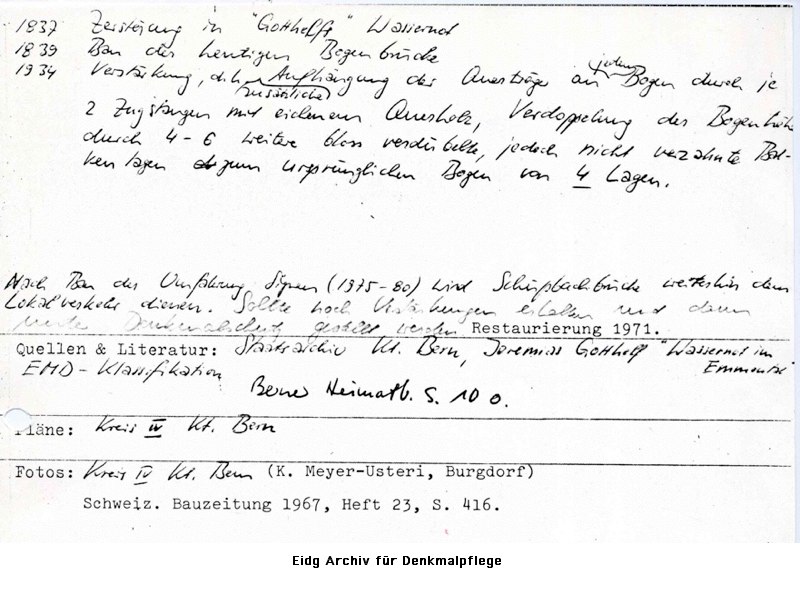 1837 Zerstörung in "Gotthelfs" Wassernot
1839 Bau der heutigen Bogenbrücke
1934 Verstärkung, d.h. zusätzliche Aufhängung der Querträger an jedem Bogen durch je
2 Zugstangen mit eichenem Querholz, Verdoppelung der Bogenhöhe
durch 4-6 weitere bloss verdübelte, jedoch nicht verzahnte Bal-
kenlagen zum ursprünglichen Bogen von 4 Lagen.
Nach Bau der Umfahrung Signau (1975-80) wird Schüpbachbrücke weiterhin dem
Lokalverkehr dienen. Sollte noch Verstärkungen erhalten und dann
unter Denkmalschutz gestellt werden Restaurierung 1971.
Quellen & Literatur: Staatsarchiv Kt. Bern, Jeremias Gotthelf "Wassernot im
Emmental"
EMD-Klassifikation
Berner Heimatb. S. 100.
Pläne: Kreis IV Kt. Bern
Fotos: Kreis IV Kt. Bern (K. Meyer-Usteri, Burgdorf)
Schweiz. Bauzeitung 1967, Heft 23, S. 416.
Eidg Archiv für Denkmalpflege